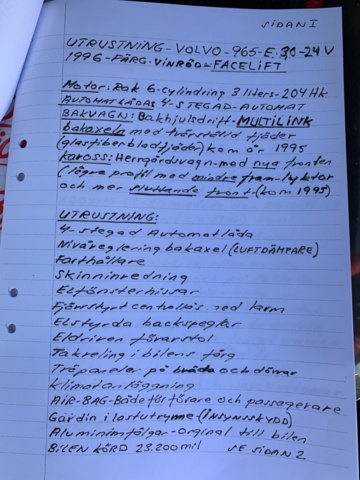 SIDAN I
UTRUSTNING - VOLVO - 965 - E. 3,0 - 24 V
1996 - FÄRG - VINRÖD - FACELIFT
Motor: Rak 6-cylindring 3 liters - 204 Hk
AUTOMATLÅDAS 4-STEGAD - AUTOMAT
BAKVAGN: Bakhjulsdrift - MULTILINK
bakaxeln med tvärställd fjäder
(glasfiberbladfjäder) kom år 1995
KAROSS: Herrgårdsvagn - med nya fronten
(lägre profil med mindre fram-lyktor
och mer sluttande front - (kom 1995)
UTRUSTNING:
4-stegad Automatlåda
Nivåreglering bakaxel (LUFTDÄMPARE)
Farthållare
Skinninredning
Elfönsterhissar
Fjärrstyrt centrallås med larm
Elstyrda backspeglar
Eldriven förarstol
Takreling i bilens färg
Träpaneler på bräda och dörrar
Klimatanläggning
AIR-BAG - Både för förare och passagerare
Gardin i lastutrymme (INSYNSSKYDD)
Aluminimfälgar - Orginal till bilen
BILEN KÖRD 23.200 mil SE SIDAN 2